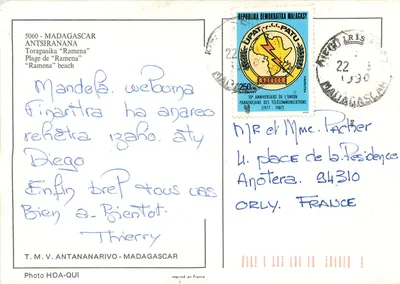 5060 - MADAGASCAR
ANTSIRANANA
Torapasika "Ramena"
Plage de "Ramena"
"Ramena" beach
Mandefa
Finaritra ha anareo
rehetra izaho. aty
Diego
Enfin bref tous
Bien a-Bientot.
Thierry
T. M. V. ANTANANARIVO - MADAGASCAR
Photo HOA-QUI
REPOBLIKA DEMOKRATIKA MALAGASY
UPAT
PATU
250
10e ANNIVERSAIRE DE L'UNION
PANAFRICAINE DES TELECOMMUNICATIONS
(1977 - 1987)
22
22
1990
MADAGASCAR
Mr et Mme. Pacher
4. place de la Residence
94310
ORLY. FRANCE